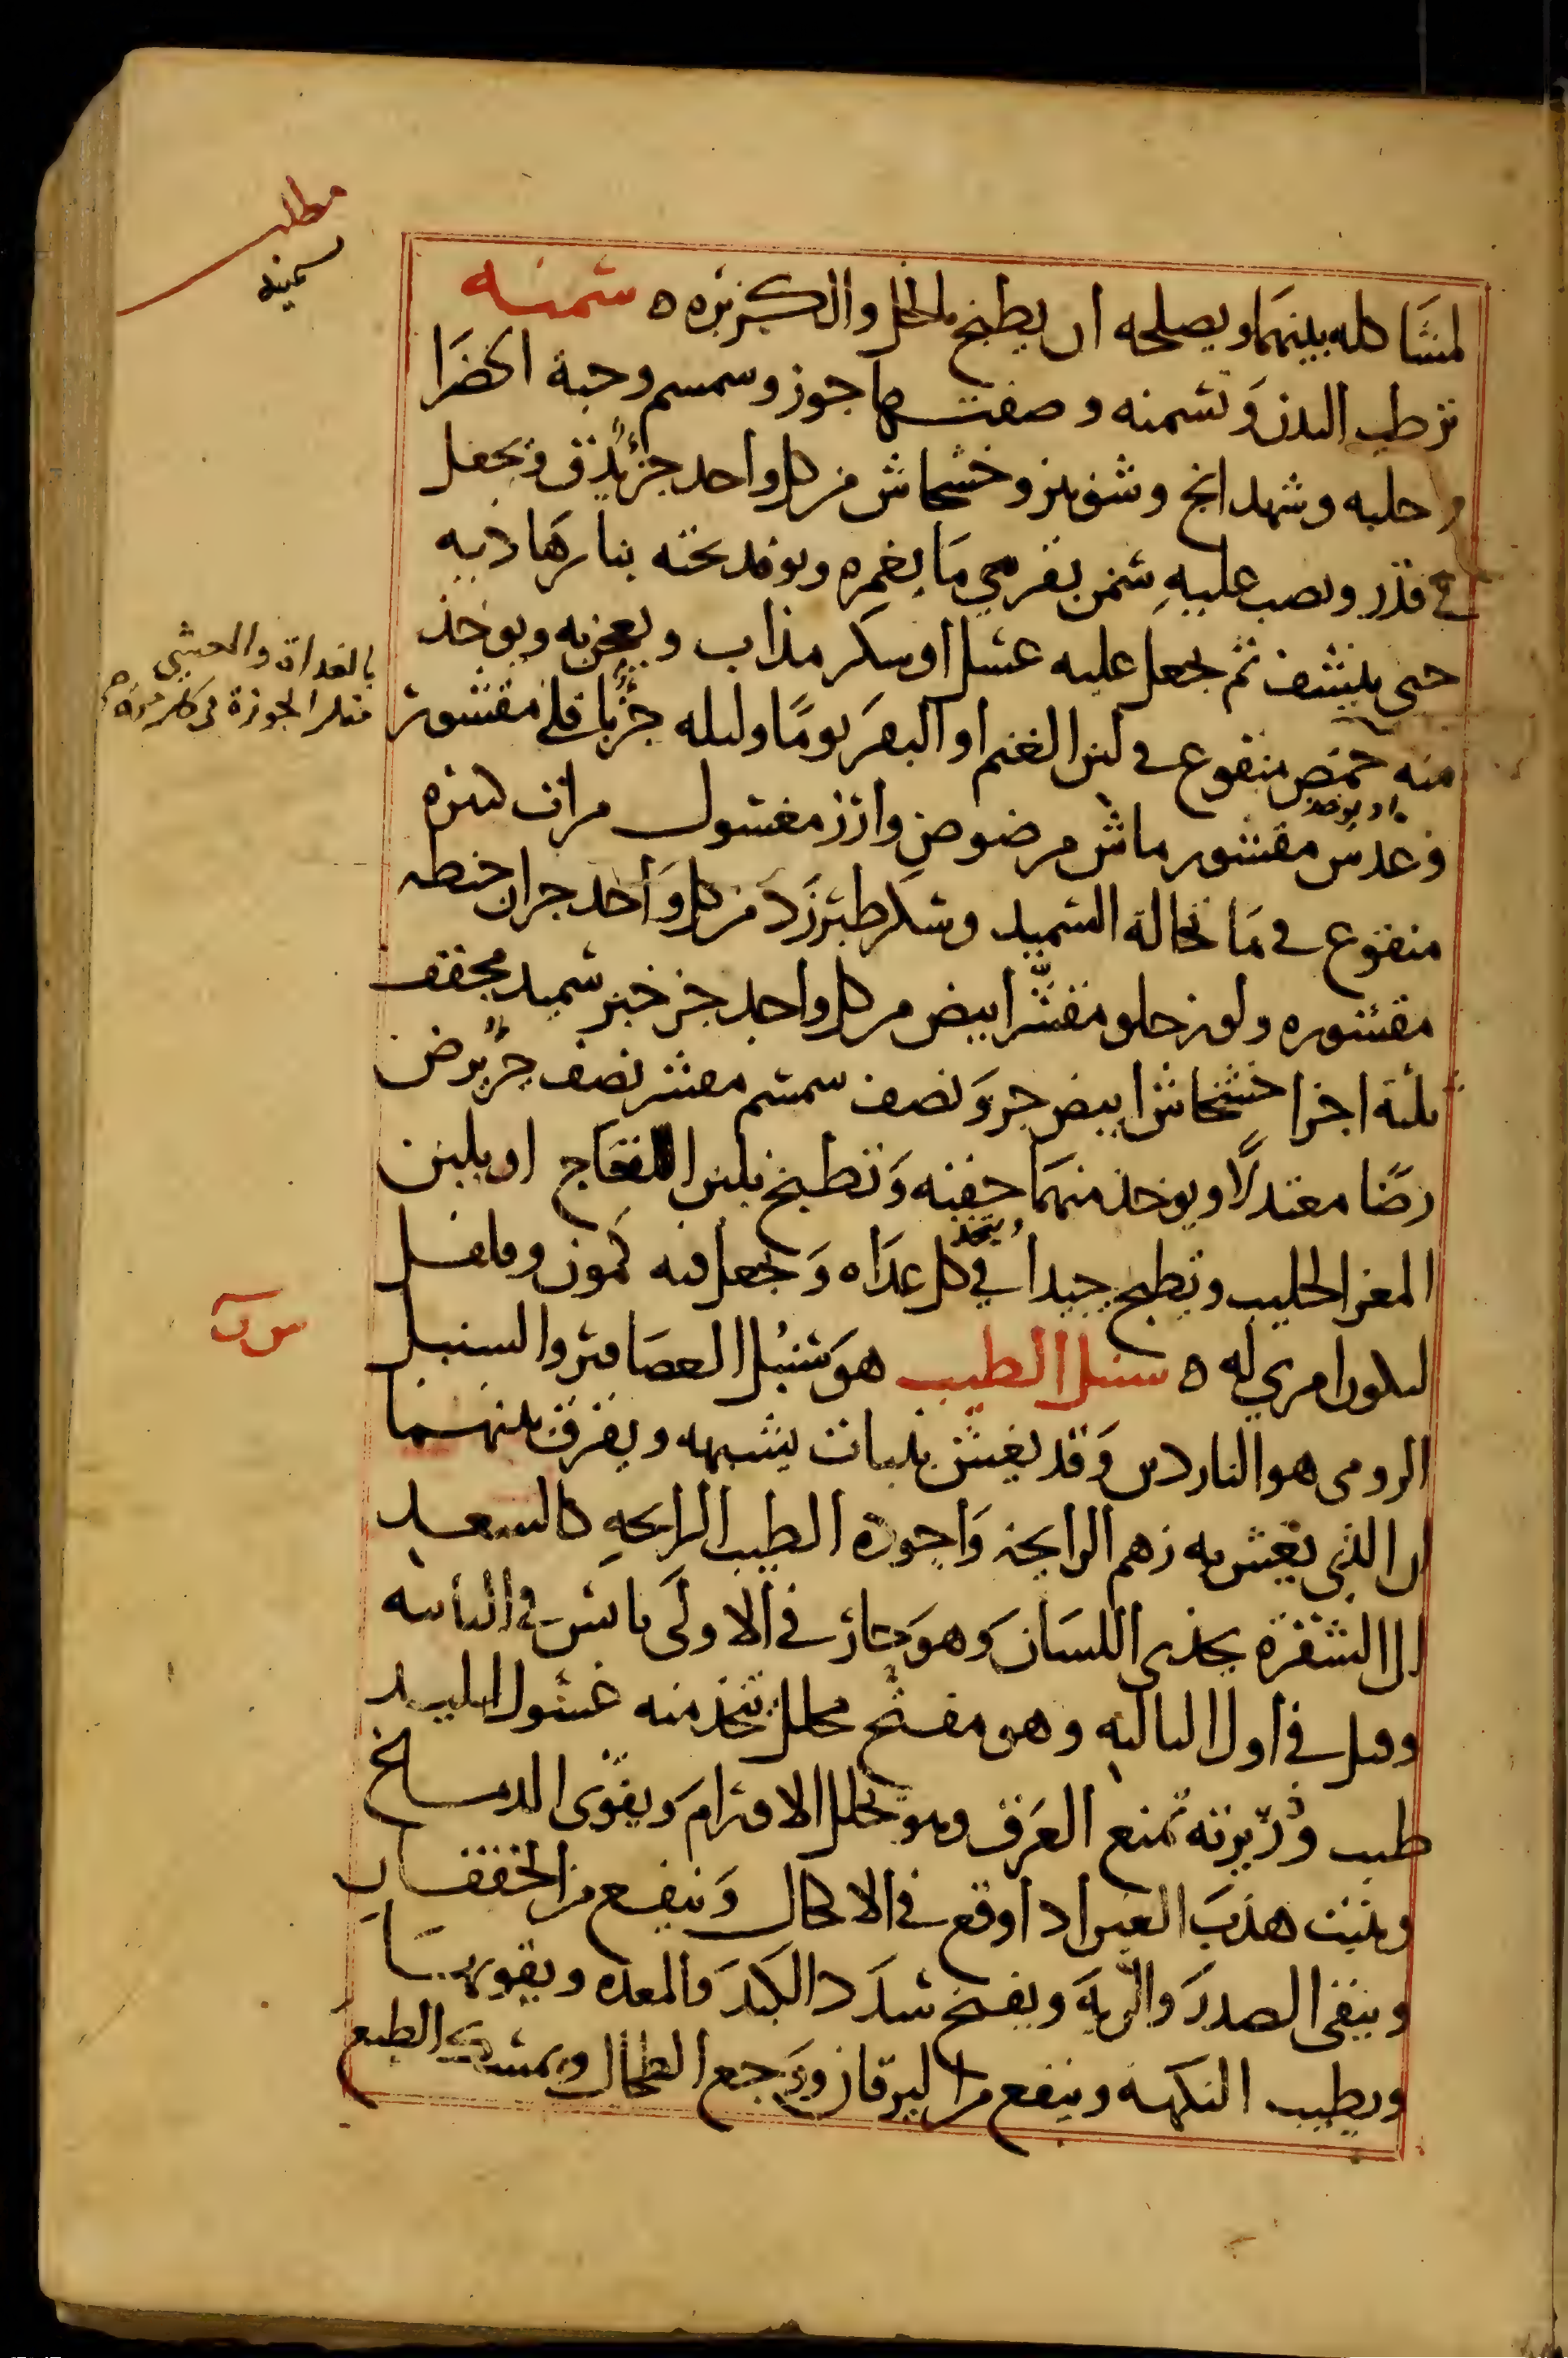 مطلب
سمنه
لمشاكله بينهما ويصلحه ان يطبخ بالخل والكزبره ه سمنه
ترطب البدن وتسمنه وصفتها جوز وسمسم وحبة الخضرا
وحلبه وشهدانج وشونيز وخشخاش من كل واحد جزءً يدق ويجعل
في قدر ويصب عليه سمن بقر مي ما يغمره ويوقد تحته بنار هاديه
حتى ينشف ثم يجعل عليه عسل او سكر مذاب ويعجن به ويوخذ
بالغداة والعشي
مثل الجوزة في كل مرة صح
منه حمص منقوع في لبن الغنم او البقر يومًا وليله جزءً باقلي مقشور
او يوخذ
وعدس مقشور ماش مرضوض وارز مغسول مرات كثيره
منقوع في ما نخالة السميد وسكر طبرزد من كل واحد جزان حنطه
مقشوره ولوز حلو مقشّر ابيض من كل واحد جز خبز سميد مجفف
ثلثة اجزا خشخاش ابيض جز ونصف سمسم مقشر نصف جزءً يرض
رضًا معتدلًا ويوخذ منهما حفنه وتطبخ بلبن اللقاح او بلبن
المعز الحليب ويطبخ جيدا ويتخذ في كل غداه ويجعل فيه كمون وفلفل
ليكون امري له ه سنبل الطيب هو سنبُل العصافير والسنبل
الرومي هو الناردين وقد يغش بنبات يشبهه ويفرق بينهما
ان الذي يغش به زهم الرايحة واجوده الطيب الرايحه كالسعد
الى الشقرة يحذي اللسان وهو حار في الاولى يابس في الثانيه
وقيل في اول الثالثه وهو مفتح محلل تتخذ منه غسول لليد
طيب وذُريرته تمنع العرق وهو يحلل الاورام ويقوى الدماغ
وينبت هدب العين اذا وقع في الاكحال وينفع من الخفقان
وينقى الصدر والريه ويفتح سدد الكبد والمعده ويقويهما
ويطيب النكهة وينفع من اليرقان ووجع الطحال ويمسك الطبع